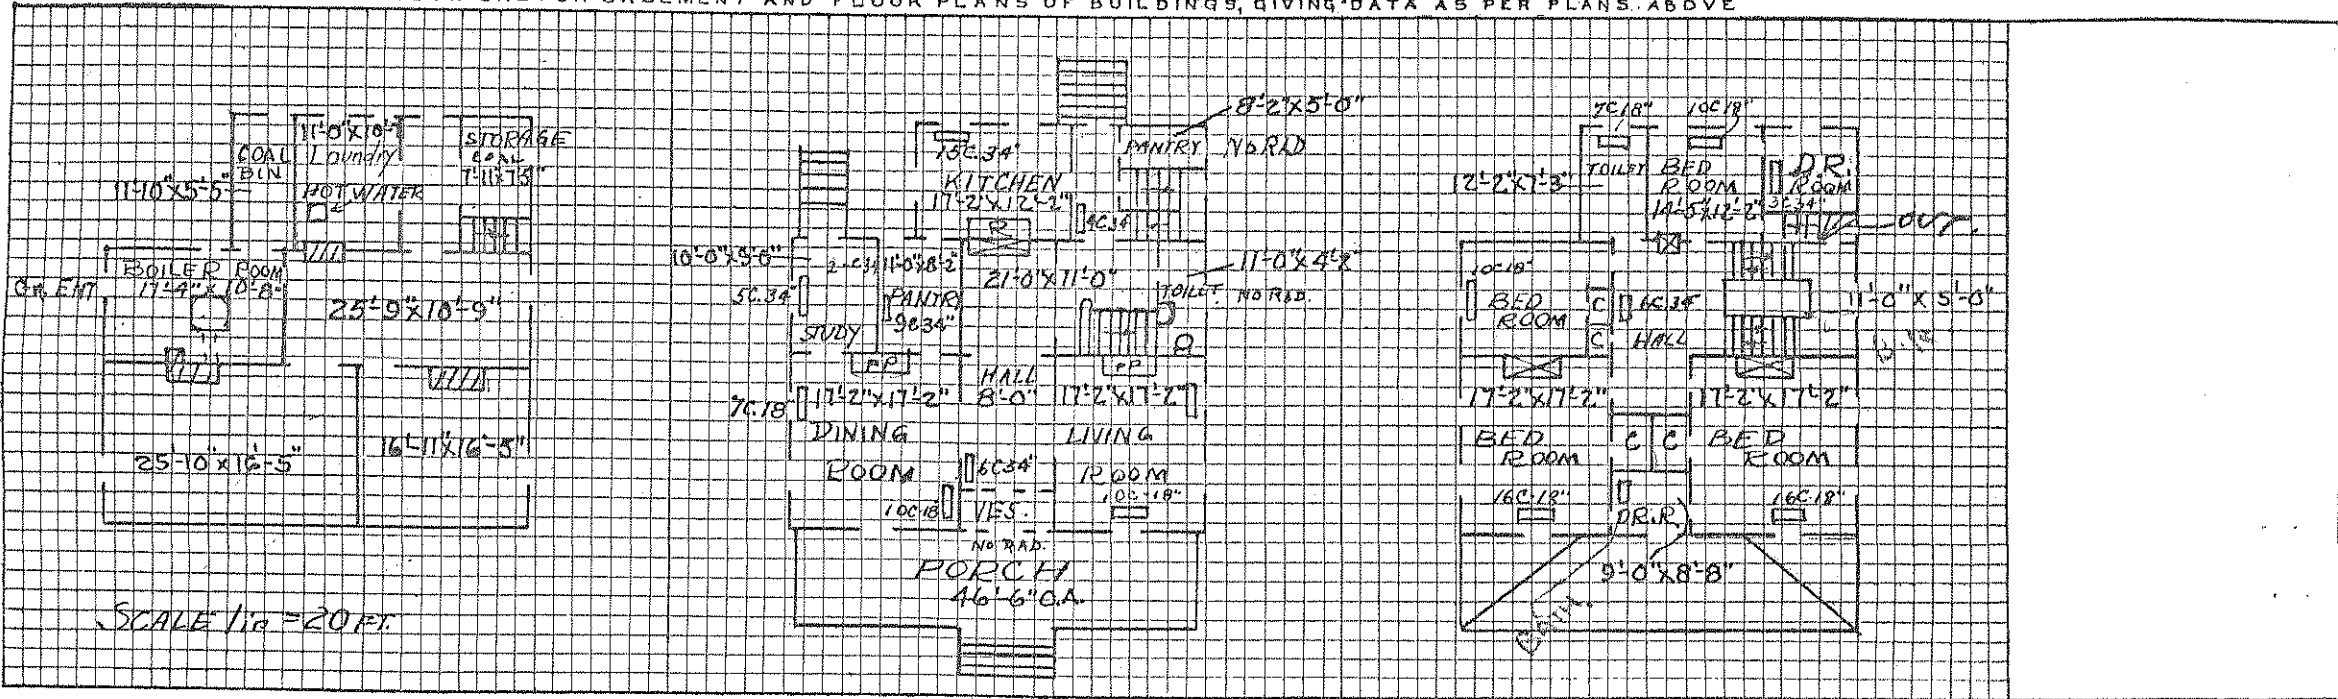 BASEMENT AND FLOOR PLANS OF BUILDINGS, GIVING DATA AS PER PLANS ABOVE
COAL
BIN
11'-10"x5'-5"
11'-0"x10'-
Laundry
HOT WATER
STORAGE
COAL
7'-11"x7'5"
GR. ENT
BOILER ROOM
17'-4" x 10'-8"
25'-9"x10'-9"
25'-10"x16'-5"
16'-11"x16'-5"
SCALE 1in = 20 FT.
8'-2"x5'-0"
15C.34"
KITCHEN
17'-2"x12'-2"
R
4C.34
PANTRY
NO RAD
10'-0"x5'-0"
11'-0"x8'-2"
21'-0"x11'-0"
11'-0"x4'-8"
5C.34"
PANTRY
9C34"
TOILET
NO RAD.
STUDY
FP
FP
HALL
8'-0"
7C.18
17'-2"x17'-2"
17'-2"x17'-2"
DINING
ROOM
LIVING
ROOM
6C34"
10C-18"
10C18
VES.
NO RAD.
PORCH
46'-6" O.A.
7C18"
10C18"
12'-2"x7'-3"
TOILET
BED
ROOM
14'-5"x12'-2"
DR.
ROOM
3C.34"
OUT.
10C18"
BED
ROOM
C
C
6C34"
HALL
11'-0" x 5'-0"
17'-2"x17'-2"
17'-2"x17'-2"
BED
ROOM
C
C
BED
ROOM
16C-18"
DR.R.
16C.18"
9'-0"x8'-8"
Bath.